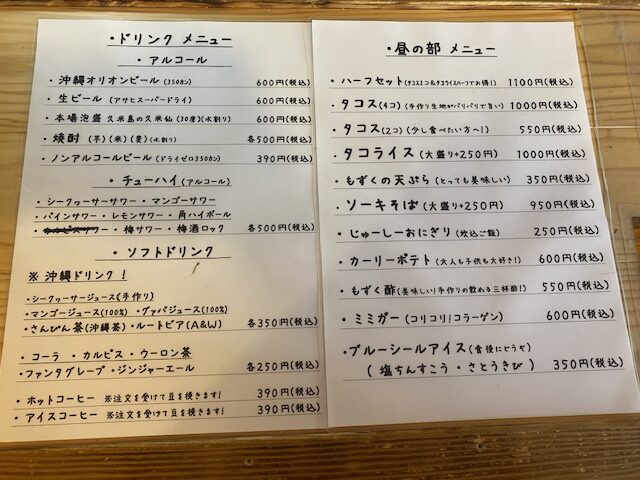 ・ドリンク メニュー
・アルコール
・沖縄オリオンビール (350カン) 600円(税込)
・生ビール (アサヒスーパードライ) 600円(税込)
・本場泡盛 久米島の久米仙 (30度)(水割り) 600円(税込)
・焼酎 (芋)(米)(麦)(水割り) 各500円(税込)
・ノンアルコールビール (ドライゼロ350カン) 390円(税込)
・チューハイ(アルコール)
・シークヮーサーサワー ・マンゴーサワー
・パインサワー ・レモンサワー ・角ハイボール
・カルピスサワー ・梅サワー ・梅酒ロック 各500円(税込)
・ソフトドリンク
※ 沖縄ドリンク!
・シークヮーサージュース(手作り)
・マンゴージュース(100%) ・グァバジュース(100%)
・さんぴん茶(沖縄茶) ・ルートビア(A&W) 各350円(税込)
・コーラ ・カルピス ・ウーロン茶
・ファンタグレープ ・ジンジャーエール 各250円(税込)
・ホットコーヒー ※注文を受けて豆を挽きます! 390円(税込)
・アイスコーヒー ※注文を受けて豆を挽きます! 390円(税込)
・昼の部 メニュー
・ハーフセット(タコス2コ&タコライスハーフでお得!) 1100円(税込)
・タコス(4コ) (手作り生地がパリパリで旨い) 1000円(税込)
・タコス(2コ) (少し食べたい方へ!) 550円(税込)
・タコライス (大盛り+250円) 1000円(税込)
・もずくの天ぷら (とっても美味しい) 350円(税込)
・ソーキそば (大盛り+250円) 950円(税込)
・じゅーしーおにぎり (炊込ご飯) 250円(税込)
・カーリーポテト (大人も子供も大好き!) 600円(税込)
・もずく酢(美味しい!手作りの飲める三杯酢!) 550円(税込)
・ミミガー (コリコリ!コラーゲン) 600円(税込)
・ブルーシールアイス(食後にどうぞ)
(塩ちんすこう・さとうきび) 350円(税込)